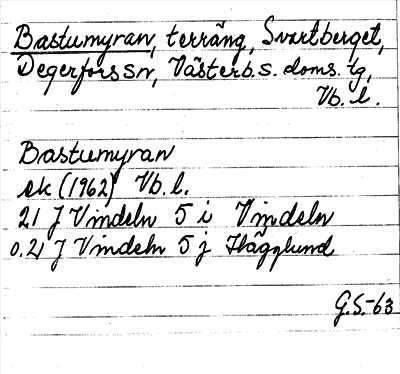 Bastumyran, terräng, Svartberget,
Degerfors sn, Västerb.s. doms. tg,
Vb. l.
Bastumyran
ek (1962) Vb. l.
21 J Vindeln 5 i Vindeln
0.21 J Vindeln 5 j Hägglund
G.S.-63